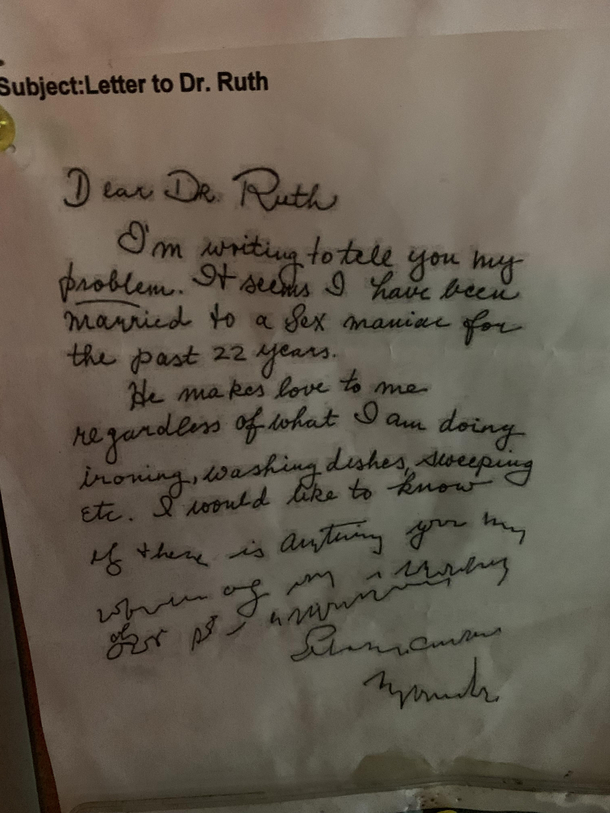 Subject:Letter to Dr. Ruth
Dear Dr. Ruth
I'm writing to tell you my
problem. It seems I have been
married to a Sex maniac for
the past 22 years.
He makes love to me
regardless of what I am doing
ironing, washing dishes, sweeping
etc. I would like to know
if there is anything